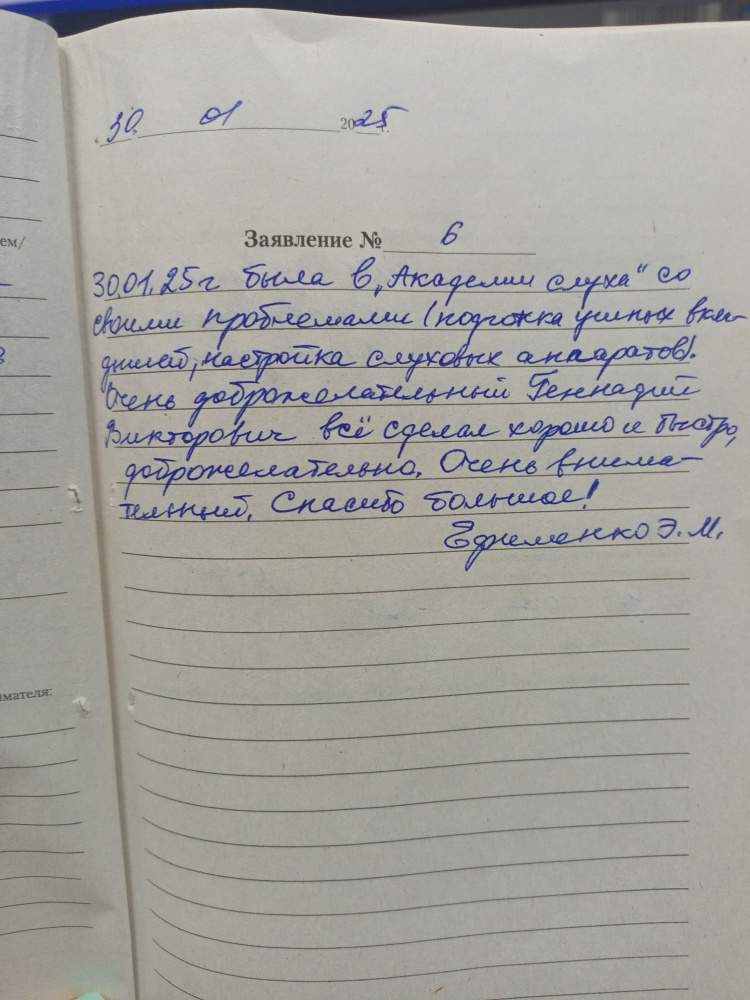 30. 01 2025г.
Заявление № 6
30.01.25г была в „Академии слуха“ со
своими проблемами (подгонка ушных вкла-
дышей, настройка слуховых аппаратов).
Очень доброжелательный Геннадий
Викторович всё сделал хорошо и быстро,
доброжелательно. Очень внима-
тельный. Спасибо большое!
Ефименко Э.М.
ем/
имателя: